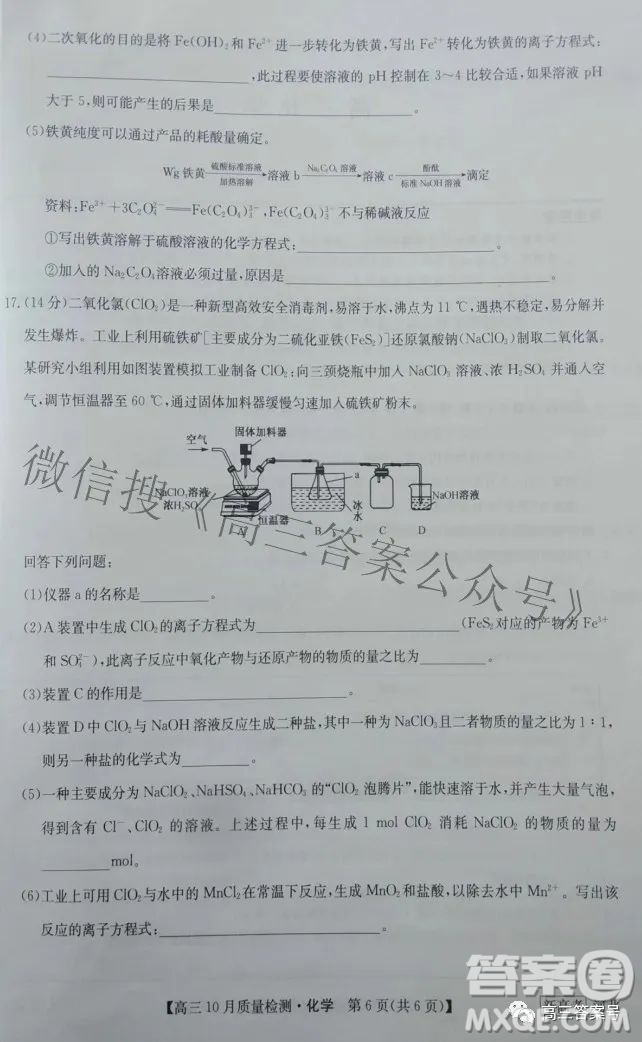 (4)二次氧化的目的是将 Fe(OH)₂ 和 Fe²⁺ 进一步转化为铁黄,写出 Fe²⁺ 转化为铁黄的离子方程式:
,此过程要使溶液的 pH 控制在 3~4 比较合适,如果溶液 pH
大于 5,则可能产生的后果是
(5)铁黄纯度可以通过产品的耗酸量确定。
Wg 铁黄 硫酸标准溶液 加热溶解 溶液 b Na₂C₂O₄ 溶液 溶液 c 酚酞 标准 NaOH 溶液 滴定
资料:Fe³⁺+3C₂O₄²⁻══Fe(C₂O₄)₃³⁻,Fe(C₂O₄)₃³⁻ 不与稀碱液反应
①写出铁黄溶解于硫酸溶液的化学方程式:。
②加入的 Na₂C₂O₄溶液必须过量,原因是。
17.(14 分)二氧化氯(ClO₂)是一种新型高效安全消毒剂,易溶于水,沸点为 11 ℃,遇热不稳定,易分解并
发生爆炸。工业上利用硫铁矿[主要成分为二硫化亚铁(FeS₂)]还原氯酸钠(NaClO₃)制取二氧化氯。
某研究小组利用如图装置模拟工业制备 ClO₂:向三颈烧瓶中加入 NaClO₃ 溶液、浓 H₂SO₄ 并通入空
气,调节恒温器至 60 ℃,通过固体加料器缓慢匀速加入硫铁矿粉末。
空气
固体加料器
a
NaClO₃溶液
浓H₂SO₄
恒温器
冰水
NaOH溶液
A B C D
回答下列问题:
(1)仪器 a 的名称是。
(2)A 装置中生成 ClO₂的离子方程式为(FeS₂对应的产物为 Fe³⁺
和 SO₄²⁻),此离子反应中氧化产物与还原产物的物质的量之比为。
(3)装置 C 的作用是。
(4)装置 D 中 ClO₂与 NaOH 溶液反应生成二种盐,其中一种为 NaClO₃且二者物质的量之比为 1∶1,
则另一种盐的化学式为。
(5)一种主要成分为 NaClO₂、NaHSO₄、NaHCO₃ 的“ClO₂ 泡腾片”,能快速溶于水,并产生大量气泡,
得到含有 Cl⁻、ClO₂ 的溶液。上述过程中,每生成 1 mol ClO₂ 消耗 NaClO₂ 的物质的量为
mol。
(6)工业上可用 ClO₂与水中的 MnCl₂在常温下反应,生成 MnO₂和盐酸,以除去水中 Mn²⁺。写出该
反应的离子方程式:。
【高三 10 月质量检测·化学 第 6 页(共 6 页)】
新高考 河北
微信搜《高三答案公众号》
答案圈
高三答案号
MXQE.COM